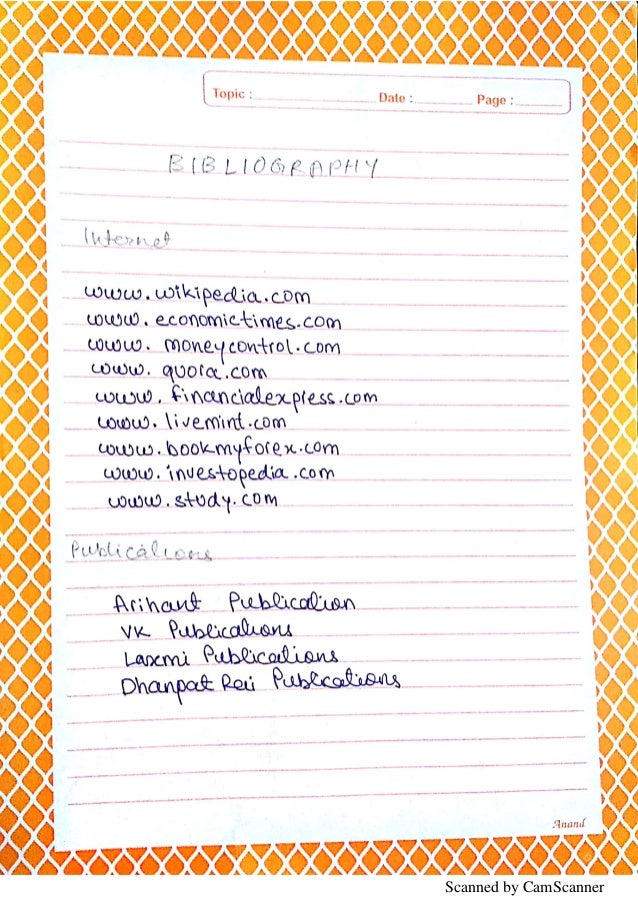 Topic : Date : Page :
BIBLIOGRAPHY
Internet
www.wikipedia.com
www.economictimes.com
www.moneycontrol.com
www.quora.com
www.financialexpress.com
www.livemint.com
www.bookmyforex.com
www.investopedia.com
www.study.com
Publications
Arihant Publication
VK Publications
Laxmi Publications
Dhanpat Rai Publications
Anand
Scanned by CamScanner